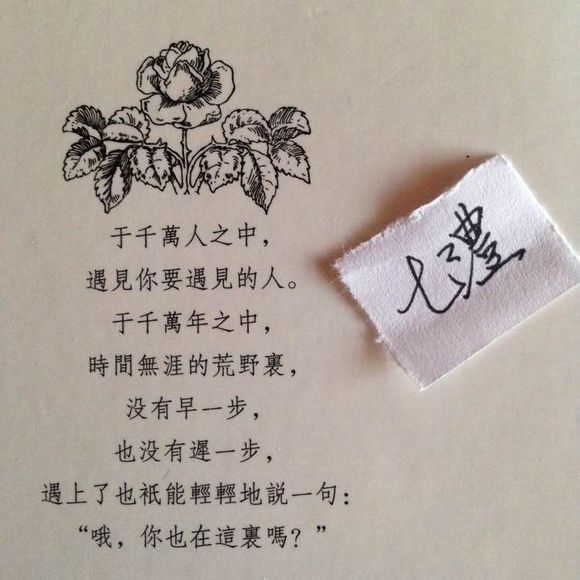 于千萬人之中，
遇見你要遇見的人。
于千萬年之中，
時間無涯的荒野裏，
没有早一步，
也没有遲一步，
遇上了也衹能輕輕地説一句：
“哦，你也在這裏嗎？”
七澧